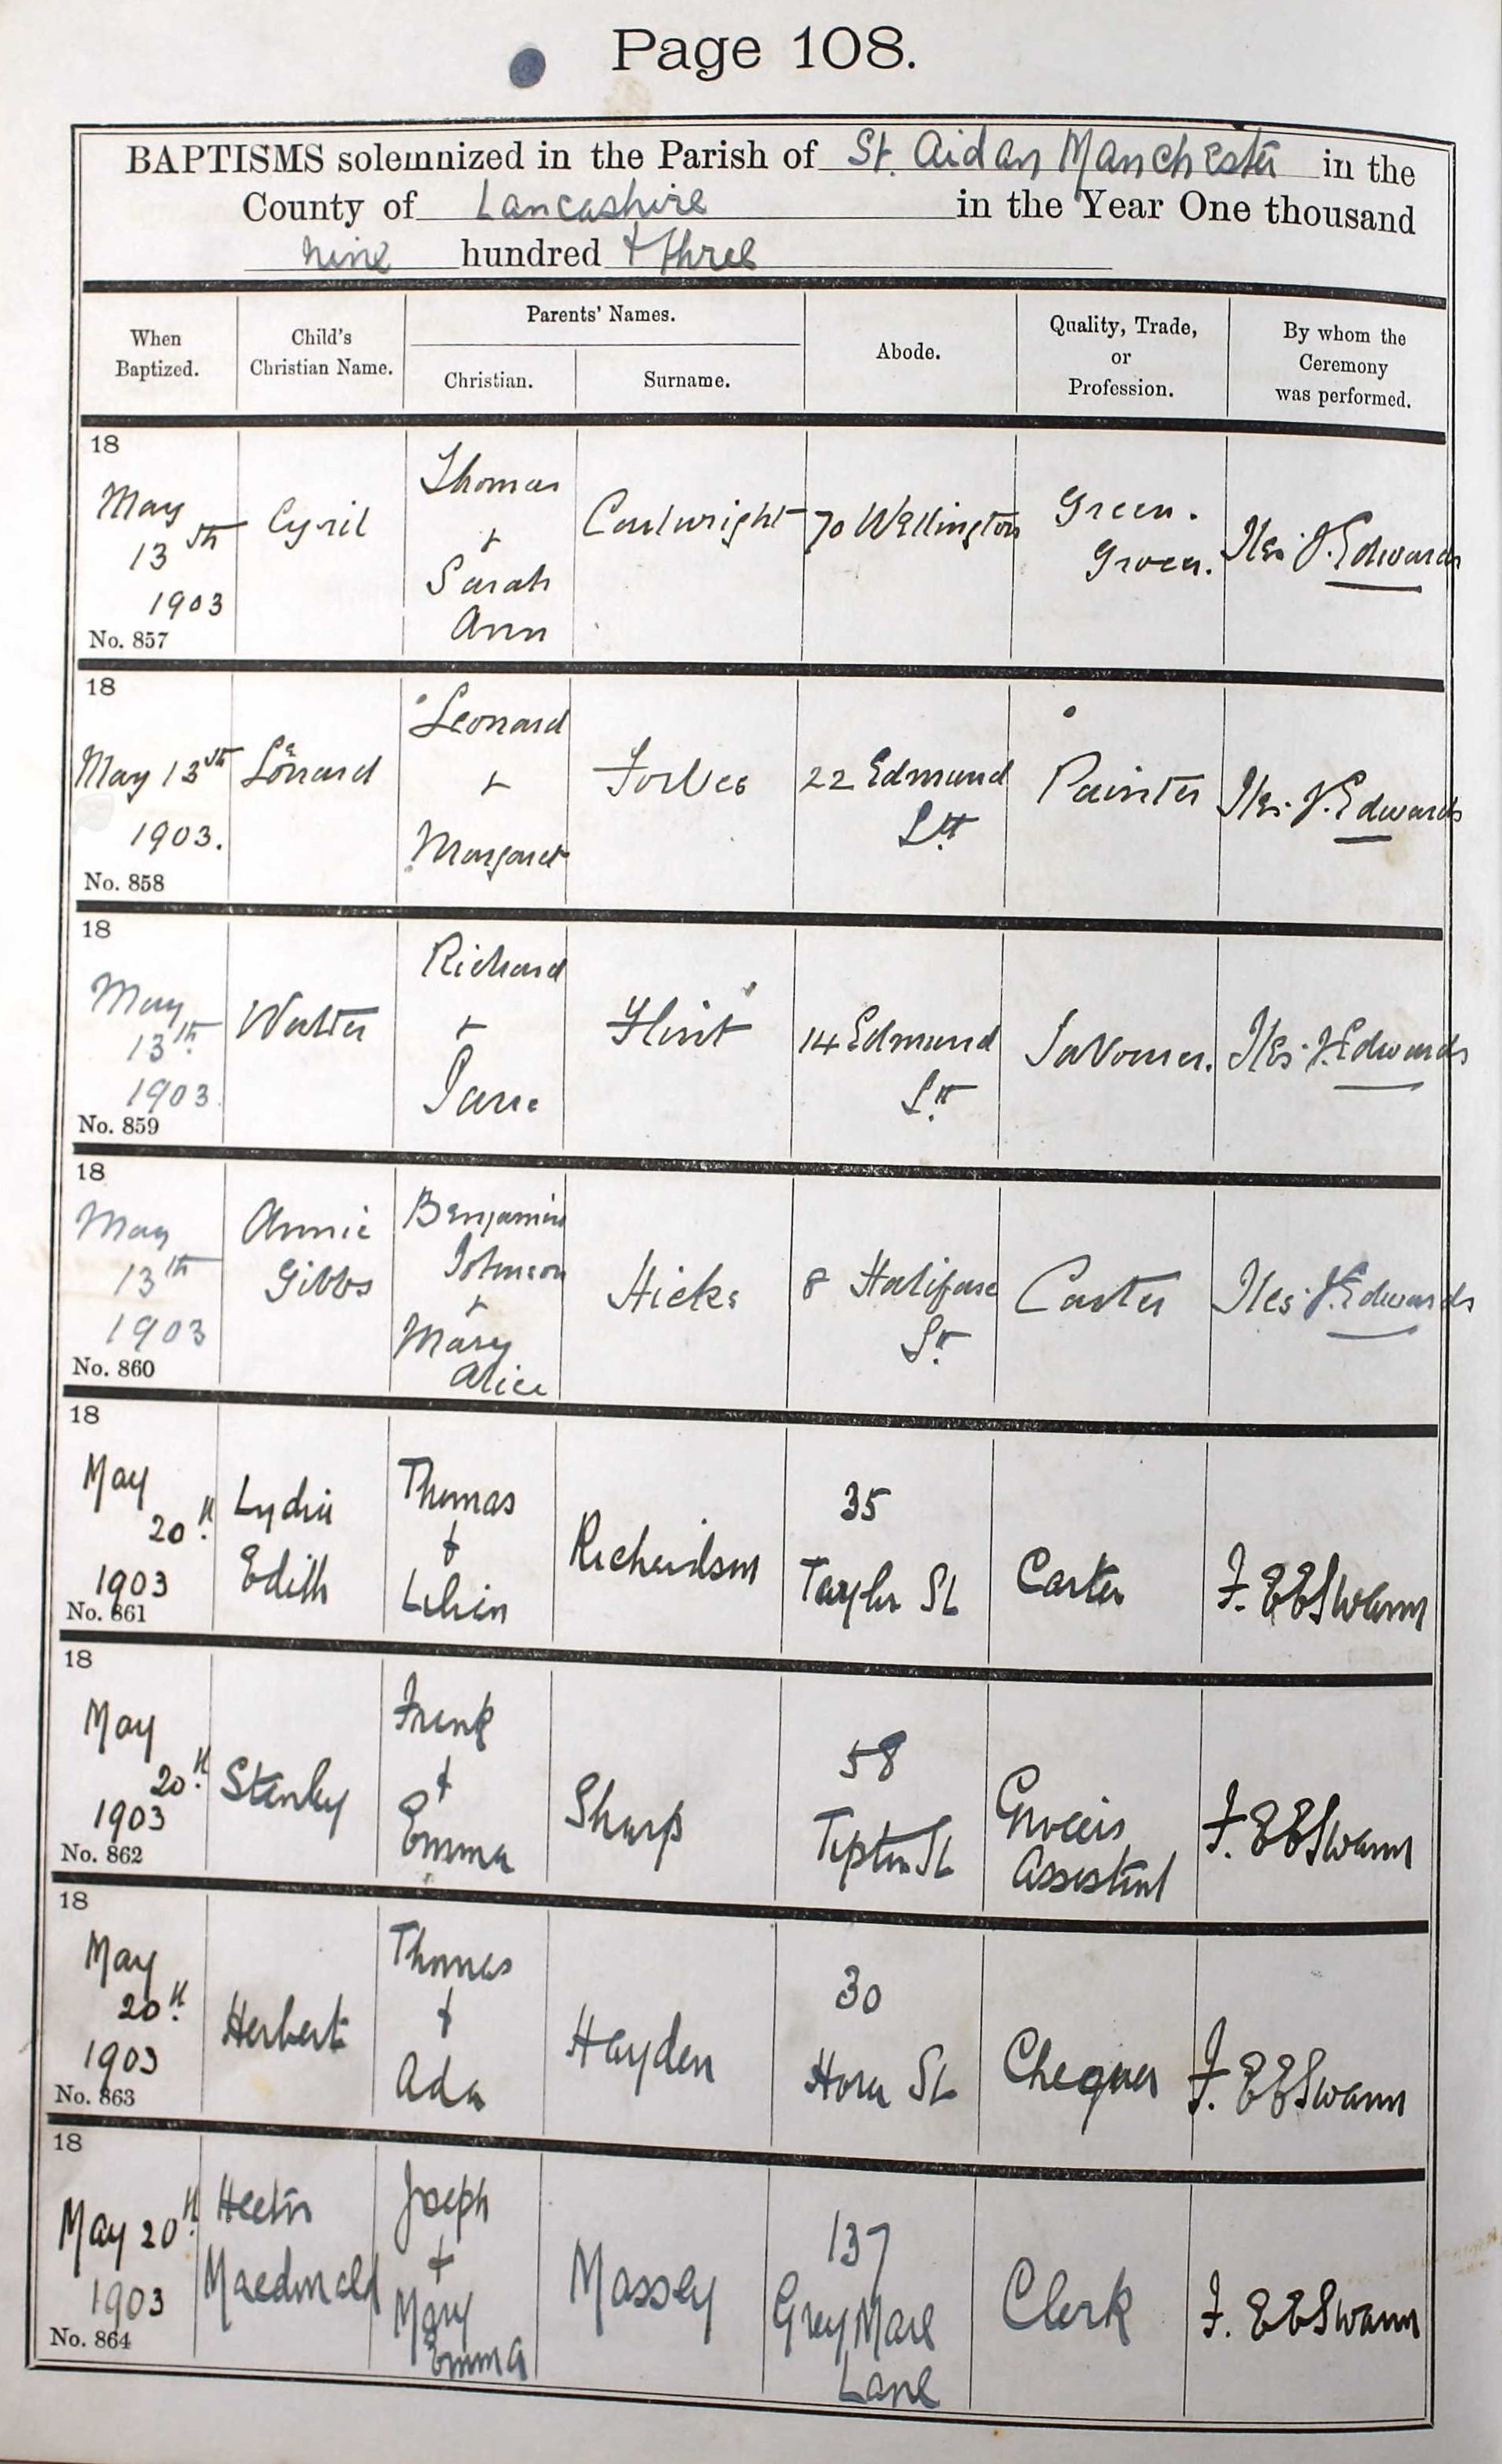 Page 108.
BAPTISMS solemnized in the Parish of St. Aidan Manchester in the
County of Lancashire in the Year One thousand
nine hundred + three
When
Baptized.
Child's
Christian Name.
Parents' Names.
Christian.
Surname.
Abode.
Quality, Trade,
or
Profession.
By whom the
Ceremony
was performed.
18
May
13th
1903
No. 857
Cyril
Thomas
+
Sarah
Ann
Cartwright
70 Wellington
Green.
Grocer.
J. Edwards
18
May 13th
1903.
No. 858
Leonard
Leonard
+
Margaret
Forbes
22 Edmund
St
Painter
J. Edwards
18
May
13th
1903.
No. 859
Walter
Richard
+
Jane
Flint
14 Edmund
St
Labourer.
J. Edwards
18
May
13th
1903
No. 860
Annie
Gibbs
Benjamin
Johnson
+
Mary
Alice
Hicks
8 Halifax
St.
Carter
J. Edwards
18
May
20th
1903
No. 861
Lydia
Edith
Thomas
+
Lilian
Richardson
35
Taylor St
Carter
F. E E Swann
18
May
20th
1903
No. 862
Stanley
Frank
+
Emma
Sharp
58
Tipton St
Grocers
Assistant
F. E E Swann
18
May
20th
1903
No. 863
Herbert
Thomas
+
Ada
Hayden
30
St
Chequer
F. E E Swann
18
May 20th
1903
No. 864
Hector
Macdonald
Joseph
+
Mary
Emma
Massey
137
Grey Mare
Lane
Clerk
F. E E Swann